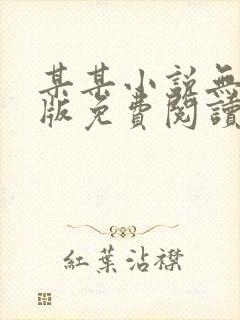 某某小説無
版免費閱讀
紅葉沾襟